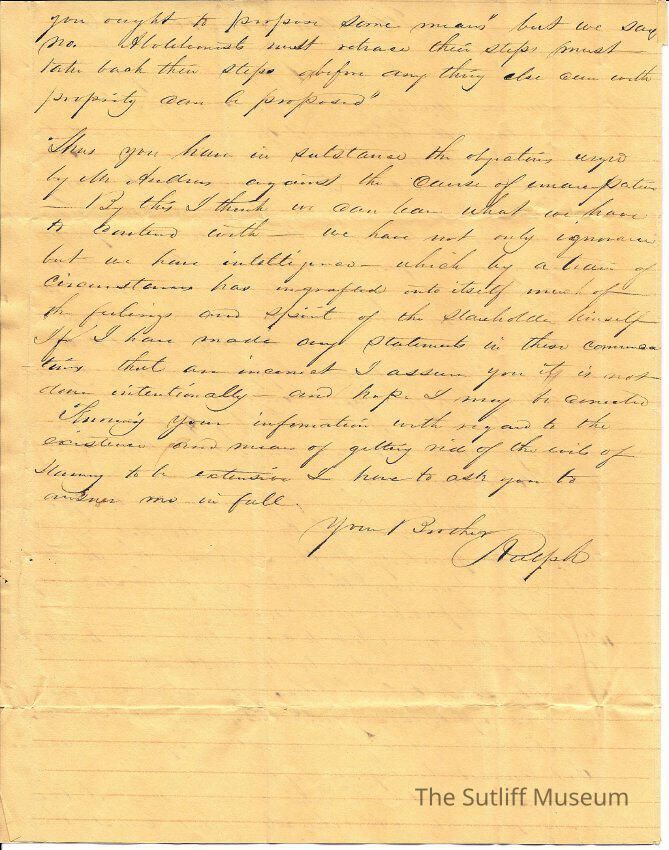 you ought to propose some means" but we say
no. Abolitionists must retrace their steps must
take back their steps before any thing else can with
propriety can be proposed"
Thus you have in substance the objections urged
by Mr Andrus against the cause of emancipation
— By this I think we can learn what we have
to contend with — we have not only ignorance
but we have intelligence — which by a train of
circumstances has ingrafted into itself much of
the feelings and spirit of the slaveholder himself
If I have made any statements in these communica
tions that are incorrect I assure you it is not
done intentionally — and hope I may be corrected
Knowing your information with regard to the
existence and means of getting rid of the evils of
slavery to be extensive I have to ask you to
answer me in full.
Your Brother
Ralph
The Sutliff Museum